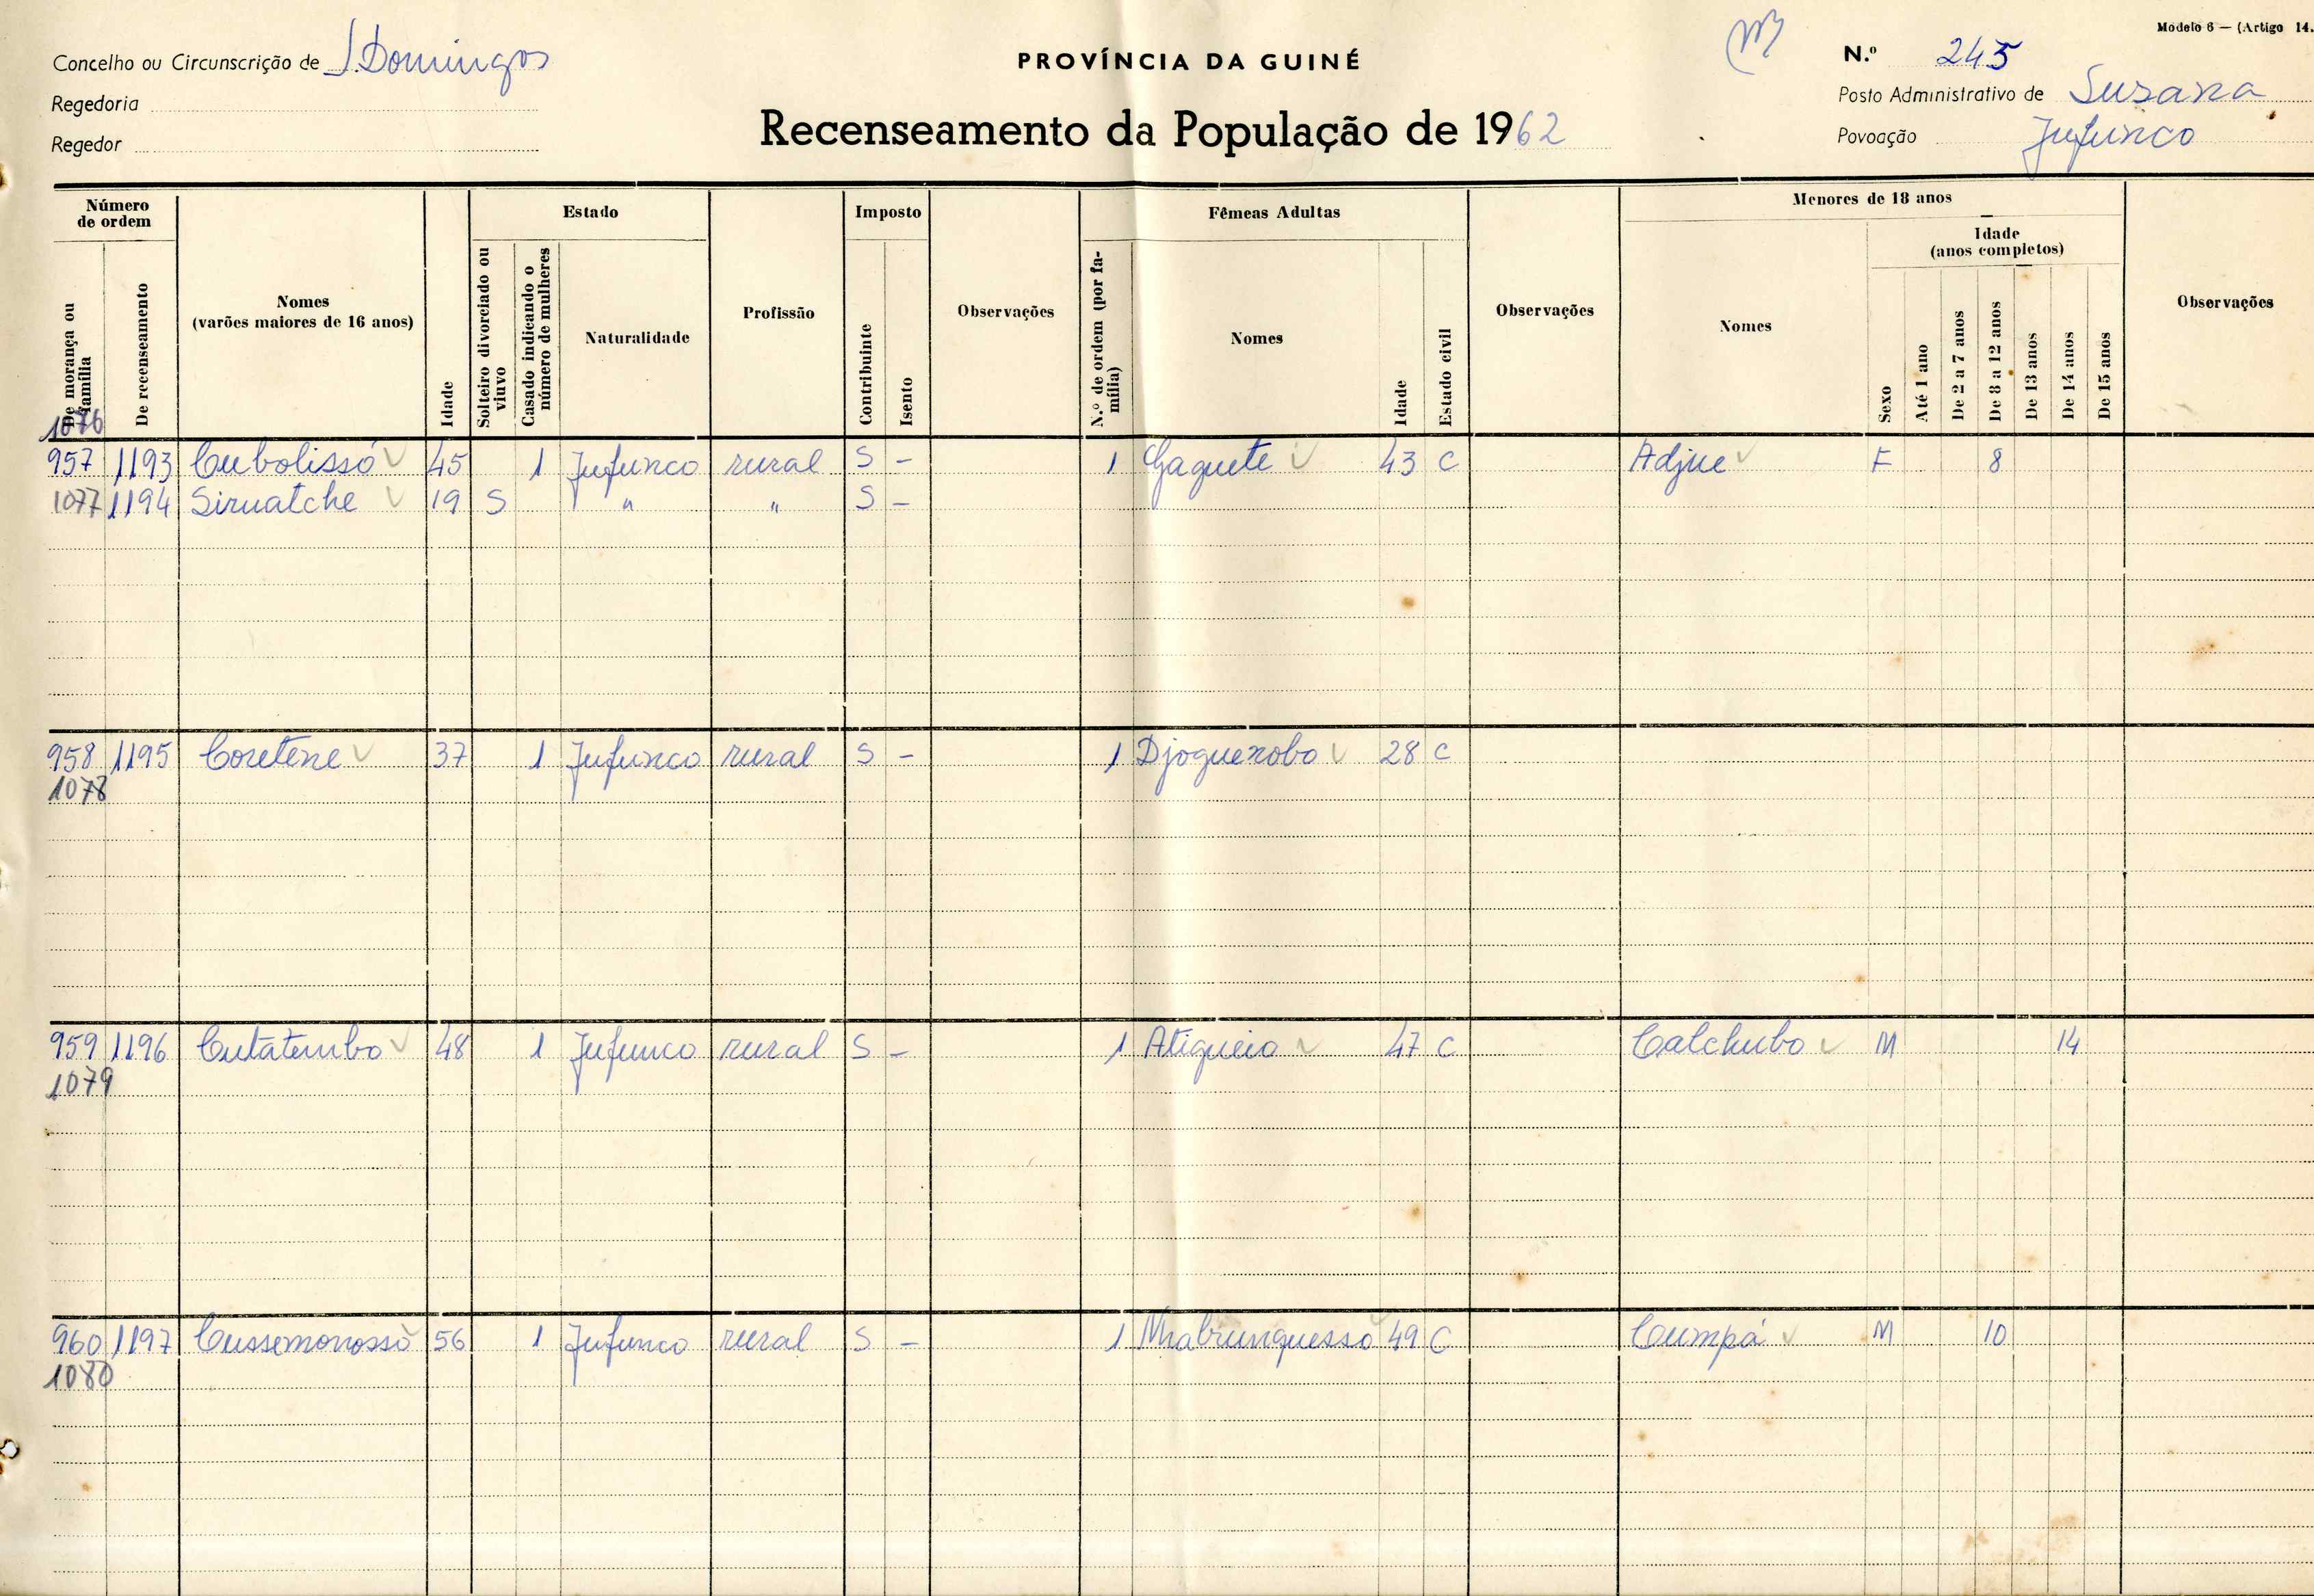 Modelo 6 — (Artigo 14.
Concelho ou Circunscrição de S. Domingos
PROVÍNCIA DA GUINÉ
N.º 245
Regedoria
Posto Administrativo de Suzana
Regedor
Recenseamento da População de 1962
Povoação Jufunco
Número de ordem
De morança ou família
De recenseamento
Nomes (varões maiores de 16 anos)
Idade
Estado
Solteiro divorciado ou viuvo
Casado indicando o número de mulheres
Naturalidade
Profissão
Imposto
Contribuinte
Isento
Observações
Fêmeas Adultas
N.º de ordem (por família)
Nomes
Idade
Estado civil
Observações
Menores de 18 anos
Nomes
Sexo
Idade (anos completos)
Até 1 ano
De 2 a 7 anos
De 8 a 12 anos
De 13 anos
De 14 anos
De 15 anos
Observações
1076
957 1193 Cubolissó 45 1 Jufunco rural S - 1 Gaguete 43 C Adjue F 8
1077 1194 Siruatche 19 S " " S -
958 1195 Coretene 37 1 Jufunco rural S - 1 Djoguenobo 28 C
1078
959 1196 Cutatembo 48 1 Jufunco rural S - 1 Atigueio 47 C Catchubo M 14
1079
960 1197 Cussemonosso 56 1 Jufunco rural S - 1 Nhabrunguesso 49 C Cumpá M 10
1080